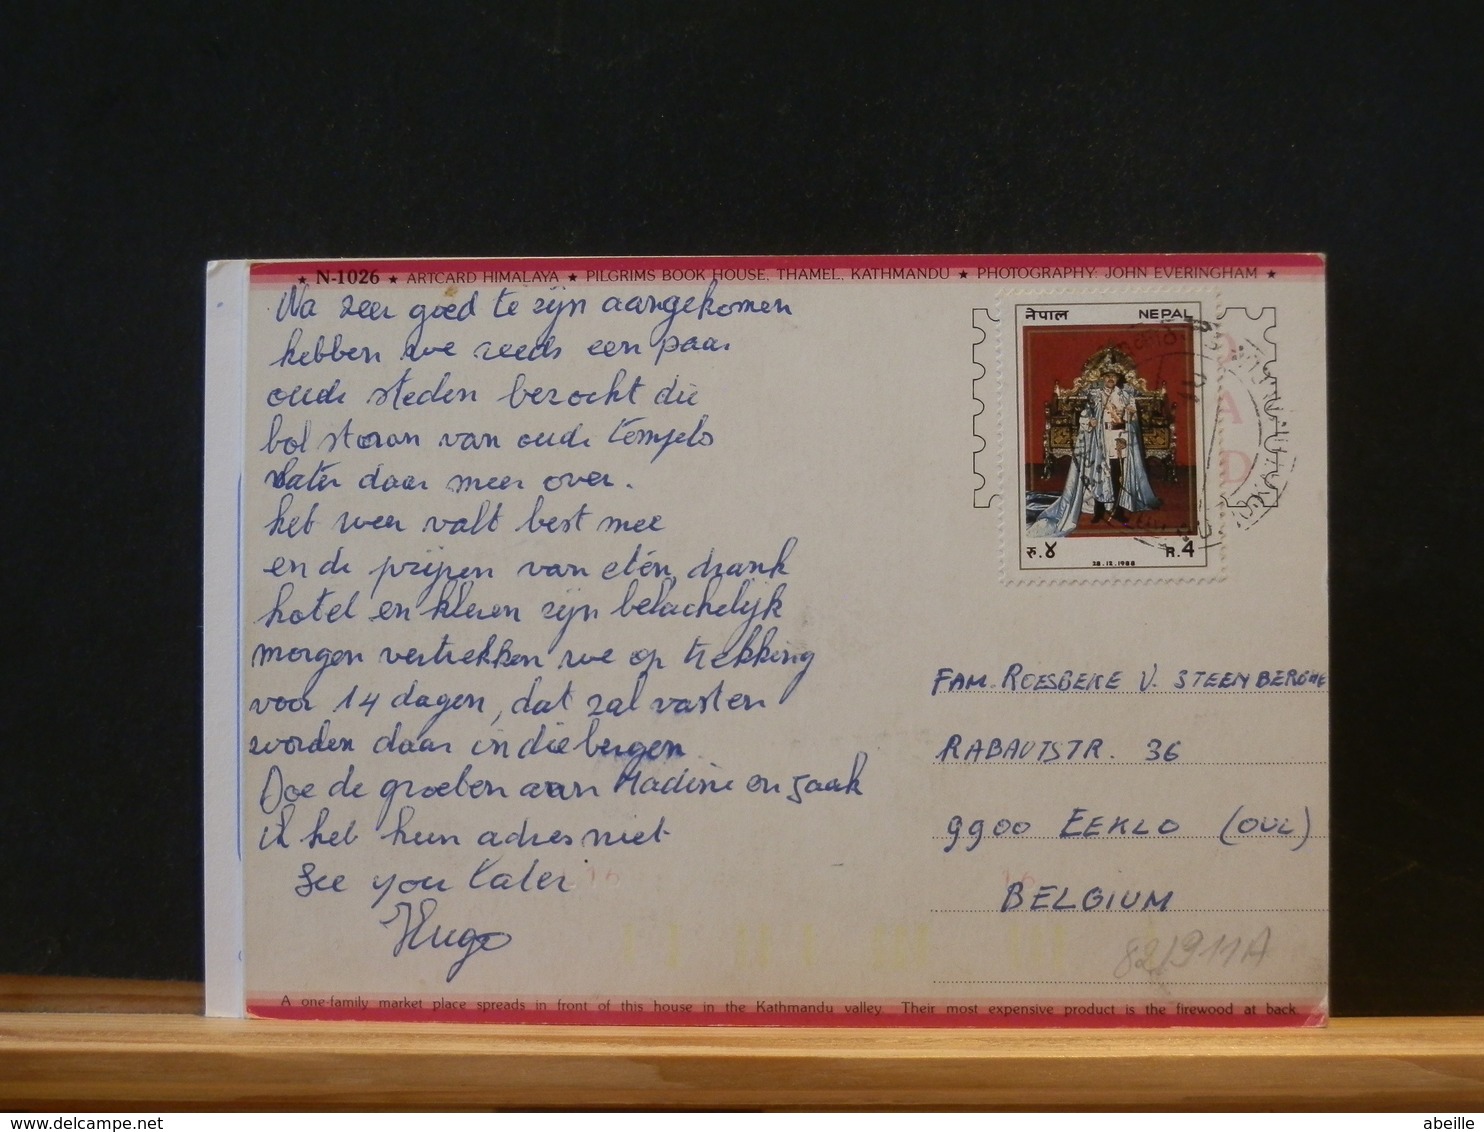 ★ N-1026 ★ ARTCARD HIMALAYA ★ PILGRIMS BOOK HOUSE, THAMEL, KATHMANDU ★ PHOTOGRAPHY: JOHN EVERINGHAM ★
Na zeer goed te zijn aangekomen
hebben we reeds een paar
oude steden bezocht die
bol staan van oude tempels
later daar meer over.
het weer valt best mee
en de prijzen van eten, drank
hotel en kleren zijn belachelijk
morgen vertrekken we op trekking
voor 14 dagen, dat zal vasten
worden daar in die bergen
Doe de groeten aan Nadine en Jaak
ik heb hun adres niet
See you later
Hugo
नेपाल NEPAL
रु.४ R.4
28.12.1988
FAM. ROESBEKE V. STEENBERGHE
RABAUTSTR. 36
9900 EEKLO (OVL)
BELGIUM
82/911A
A one-family market place spreads in front of this house in the Kathmandu valley. Their most expensive product is the firewood at back.
abeille